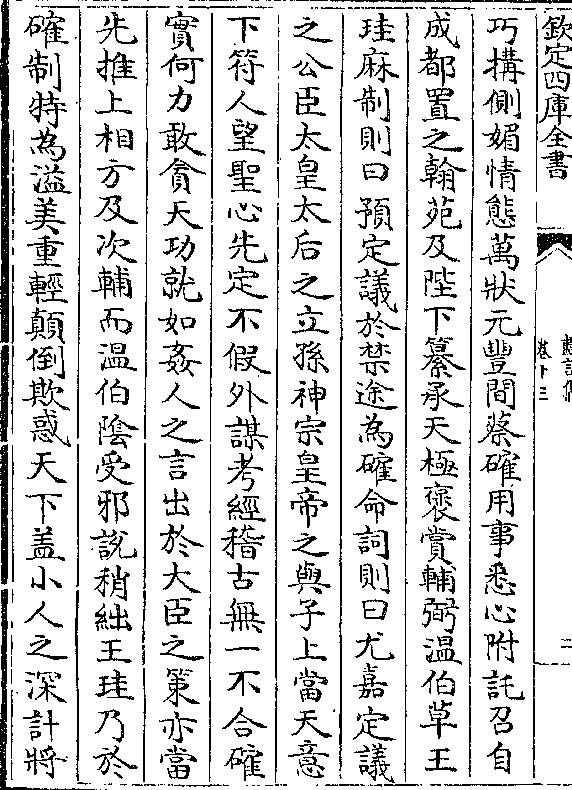 欽定四庫全書
巧搆側媚情態萬狀元豐間蔡確用事悉心附託召自
成都置之翰苑及陛下纂承天極褒賞輔弼温伯草王
珪麻制則曰預定議於禁途為確命詞則曰尤嘉定議
之公臣太皇太后之立孫神宗皇帝之與子上當天意
下符人望聖心先定不假外謀考經稽古無一不合確
實何力敢貪天功就如姦人之言出於大臣之策亦當
先推上相方及次輔而温伯隂受邪說稍絀王珪乃於
確制特為溢美重輕顛倒欺惑天下盖小人之深計將